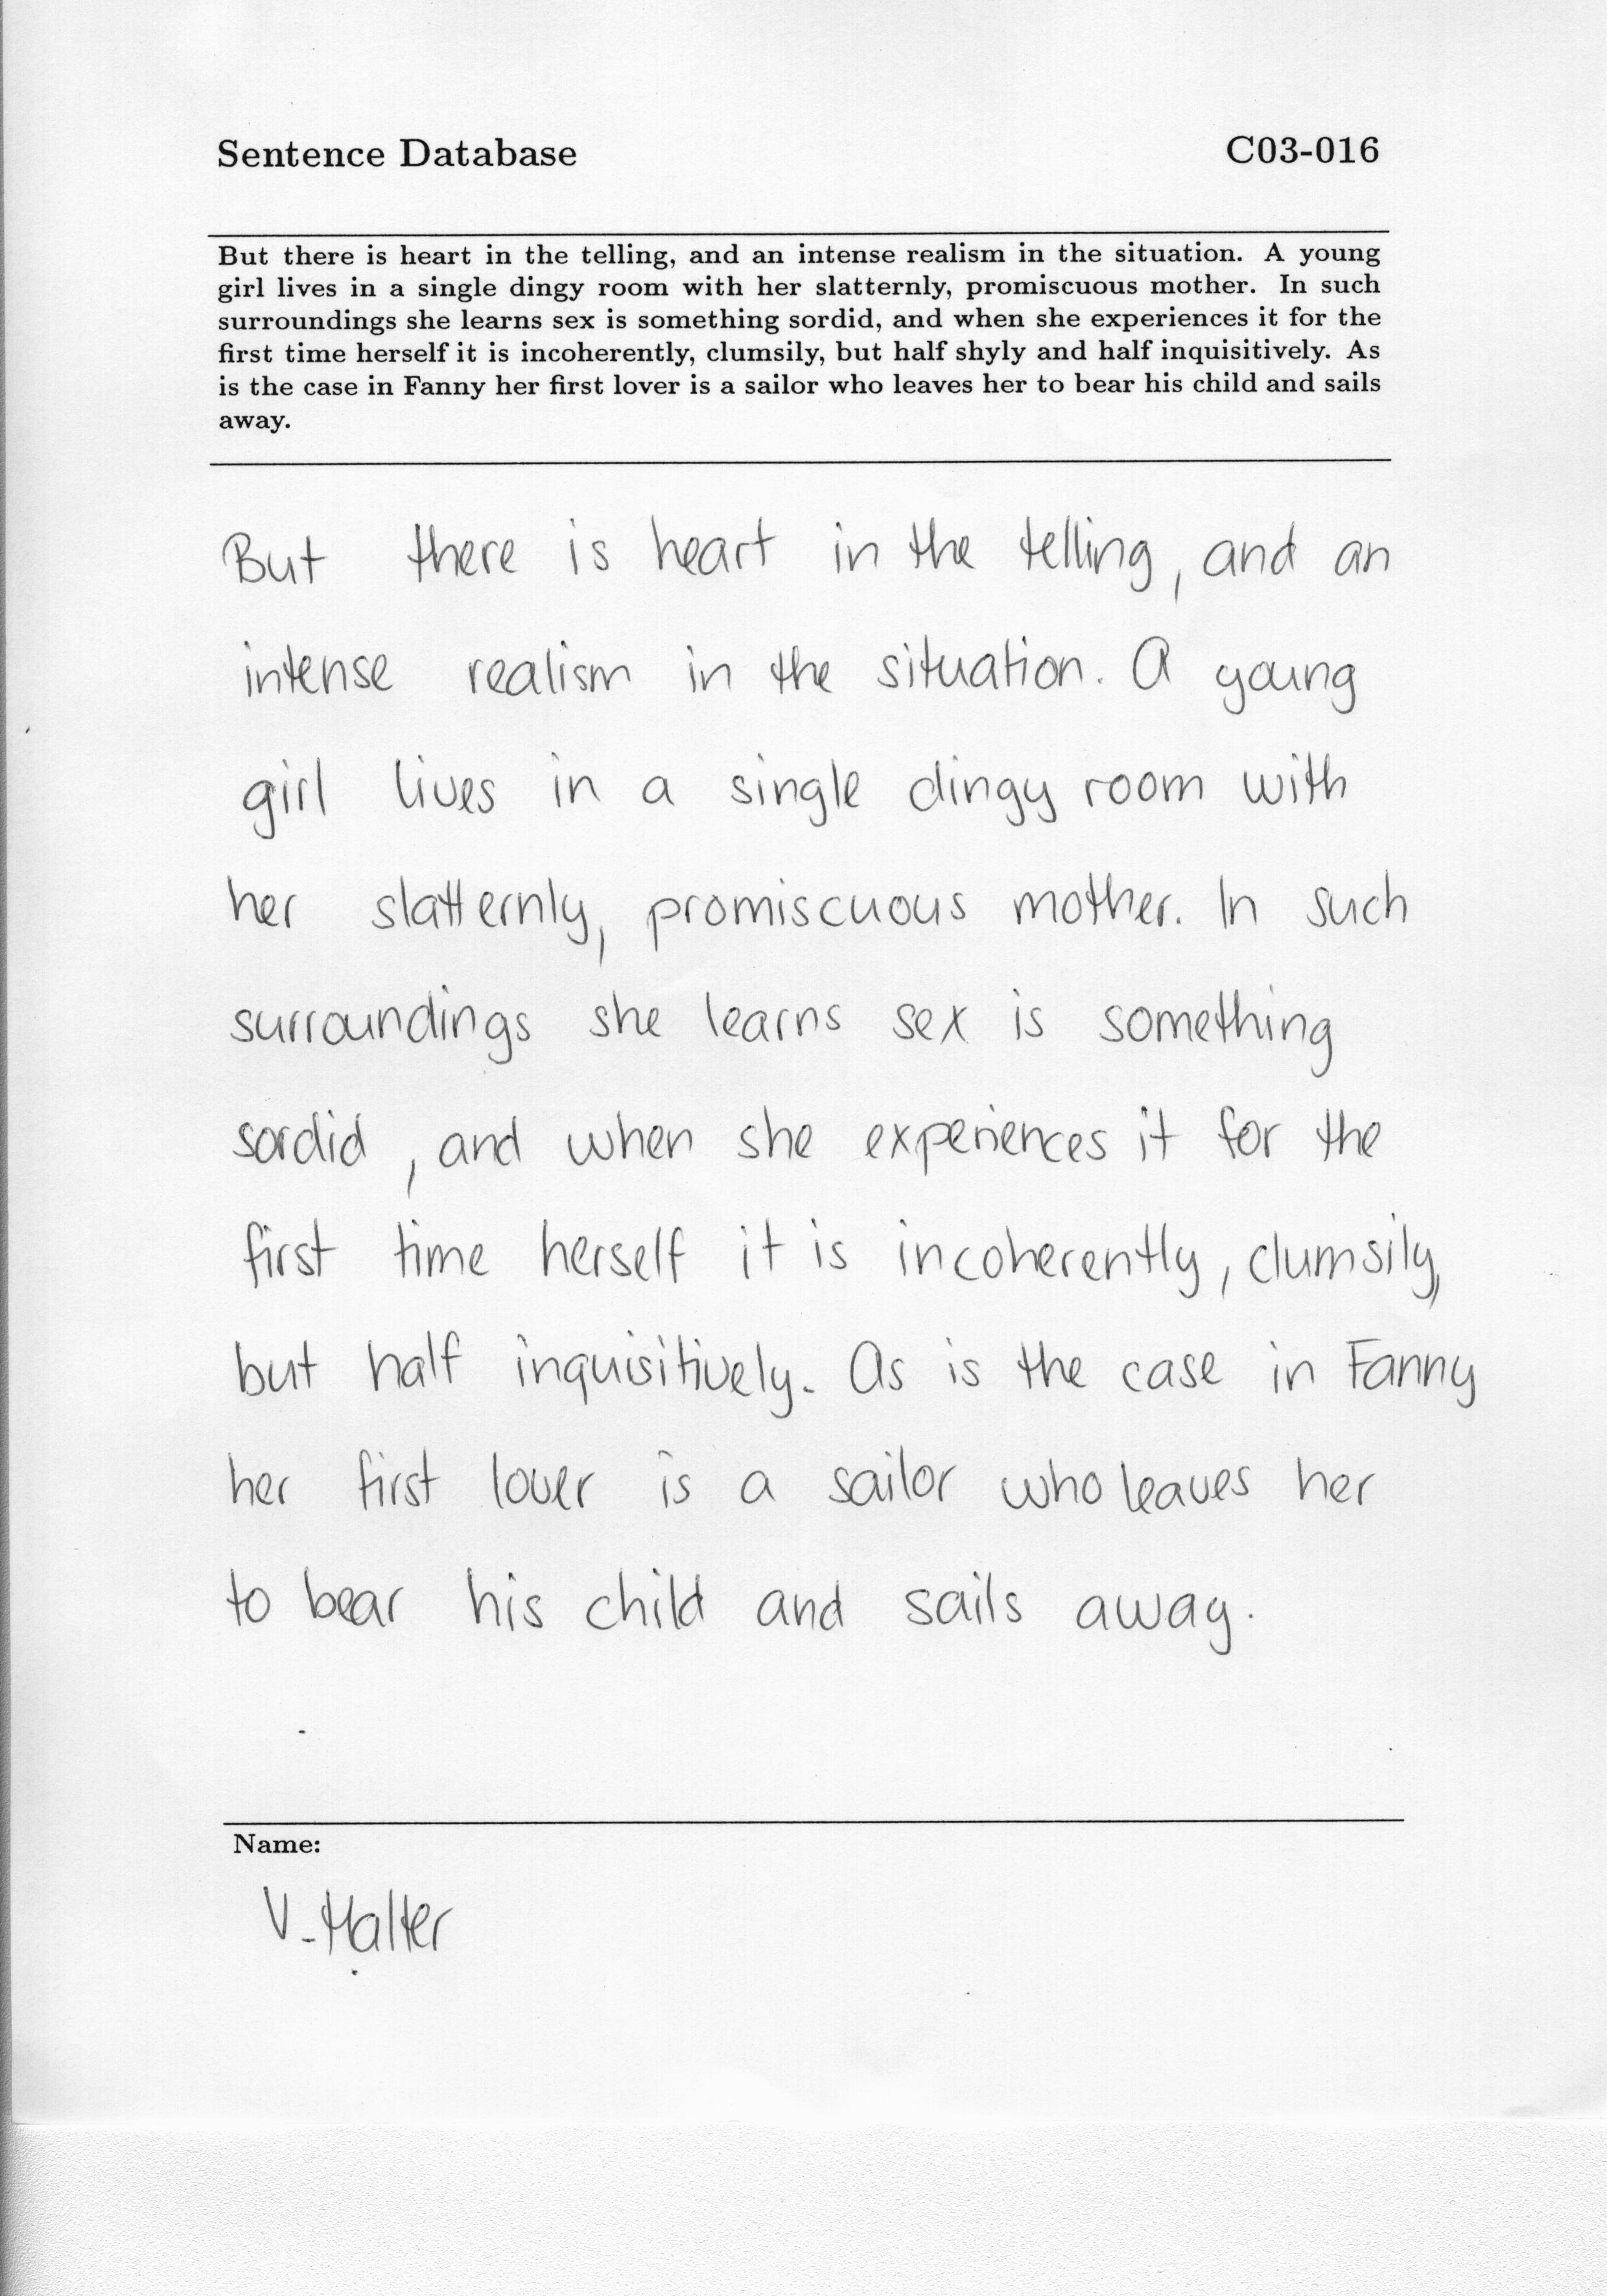 Sentence Database C03-016
But there is heart in the telling, and an intense realism in the situation. A young
girl lives in a single dingy room with her slatternly, promiscuous mother. In such
surroundings she learns sex is something sordid, and when she experiences it for the
first time herself it is incoherently, clumsily, but half shyly and half inquisitively. As
is the case in Fanny her first lover is a sailor who leaves her to bear his child and sails
away.
But there is heart in the telling, and an
intense realism in the situation. A young
girl lives in a single dingy room with
her slatternly, promiscuous mother. In such
surroundings she learns sex is something
sordid, and when she experiences it for the
first time herself it is incoherently, clumsily,
but half inquisitively. As is the case in Fanny
her first lover is a sailor who leaves her
to bear his child and sails away.
Name:
V. Halter